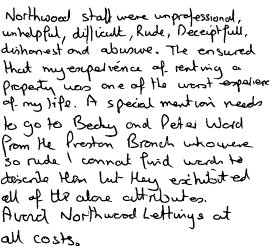 Northwood staff were unprofessional,
unhelpful, difficult, Rude, Deceiptfull,
dishonest and abusive. The ensured
that my experience of renting a
property was one of the worst experience
of my life. A special mention needs
to go to Becky and Peter Word
from the Preston Branch who were
so rude I cannot find words to
describe them but they exhibited
all of the above attributes.
Avoid Northwood Lettings at
all costs.